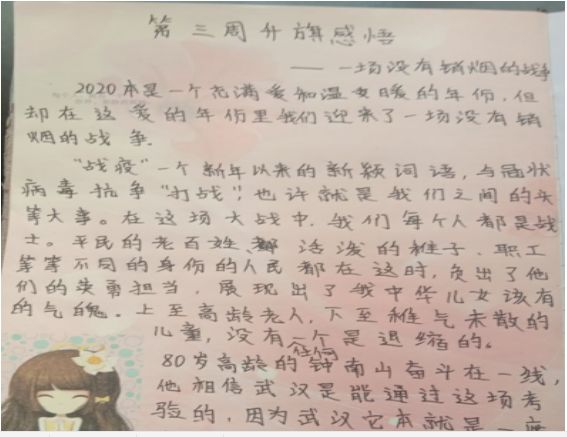 第三周升旗感悟
——一场没有销烟的战争
2020本是一个充满爱和温女暖的年份,但
却在这爱的年份里我们迎来了一场没有销
烟的战争.
"战疫"一个新年以来的新颖词语,与冠状
病毒抗争"打战",也许就是我们之间的头
等大事。在这场大战中,我们每个人都是战
士。平民的老百姓、活泼的稚子、职工
等等不同的身份的人民都在这时,负出了他
们的英勇担当,展现出了我中华儿女该有
的气魄。上至高龄老人,下至稚气未散的
儿童,没有任何一个是退缩的。
80岁高龄的钟南山奋斗在一线,
他相信武汉是能通过这场考
验的,因为武汉它本就是一座